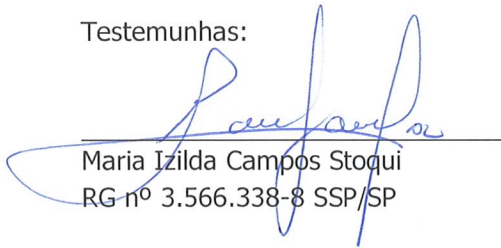 Testemunhas:
Maria Izilda Campos Stoqui
RG nº 3.566.338-8 SSP/SP